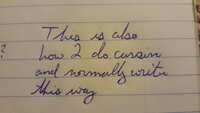 This is also
how I do cursive
and normally write
this way